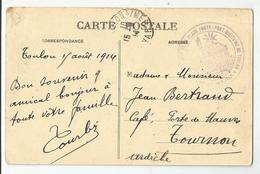 CARTE POSTALE
CORRESPONDANCE
ADRESSE
Toulon 1 août 1914
Bon souvenir &
amical bonjour à
toute votre famille
Madame & Monsieur
Jean Bertrand
Café Porte de Mauves
Tournon
Ardèche